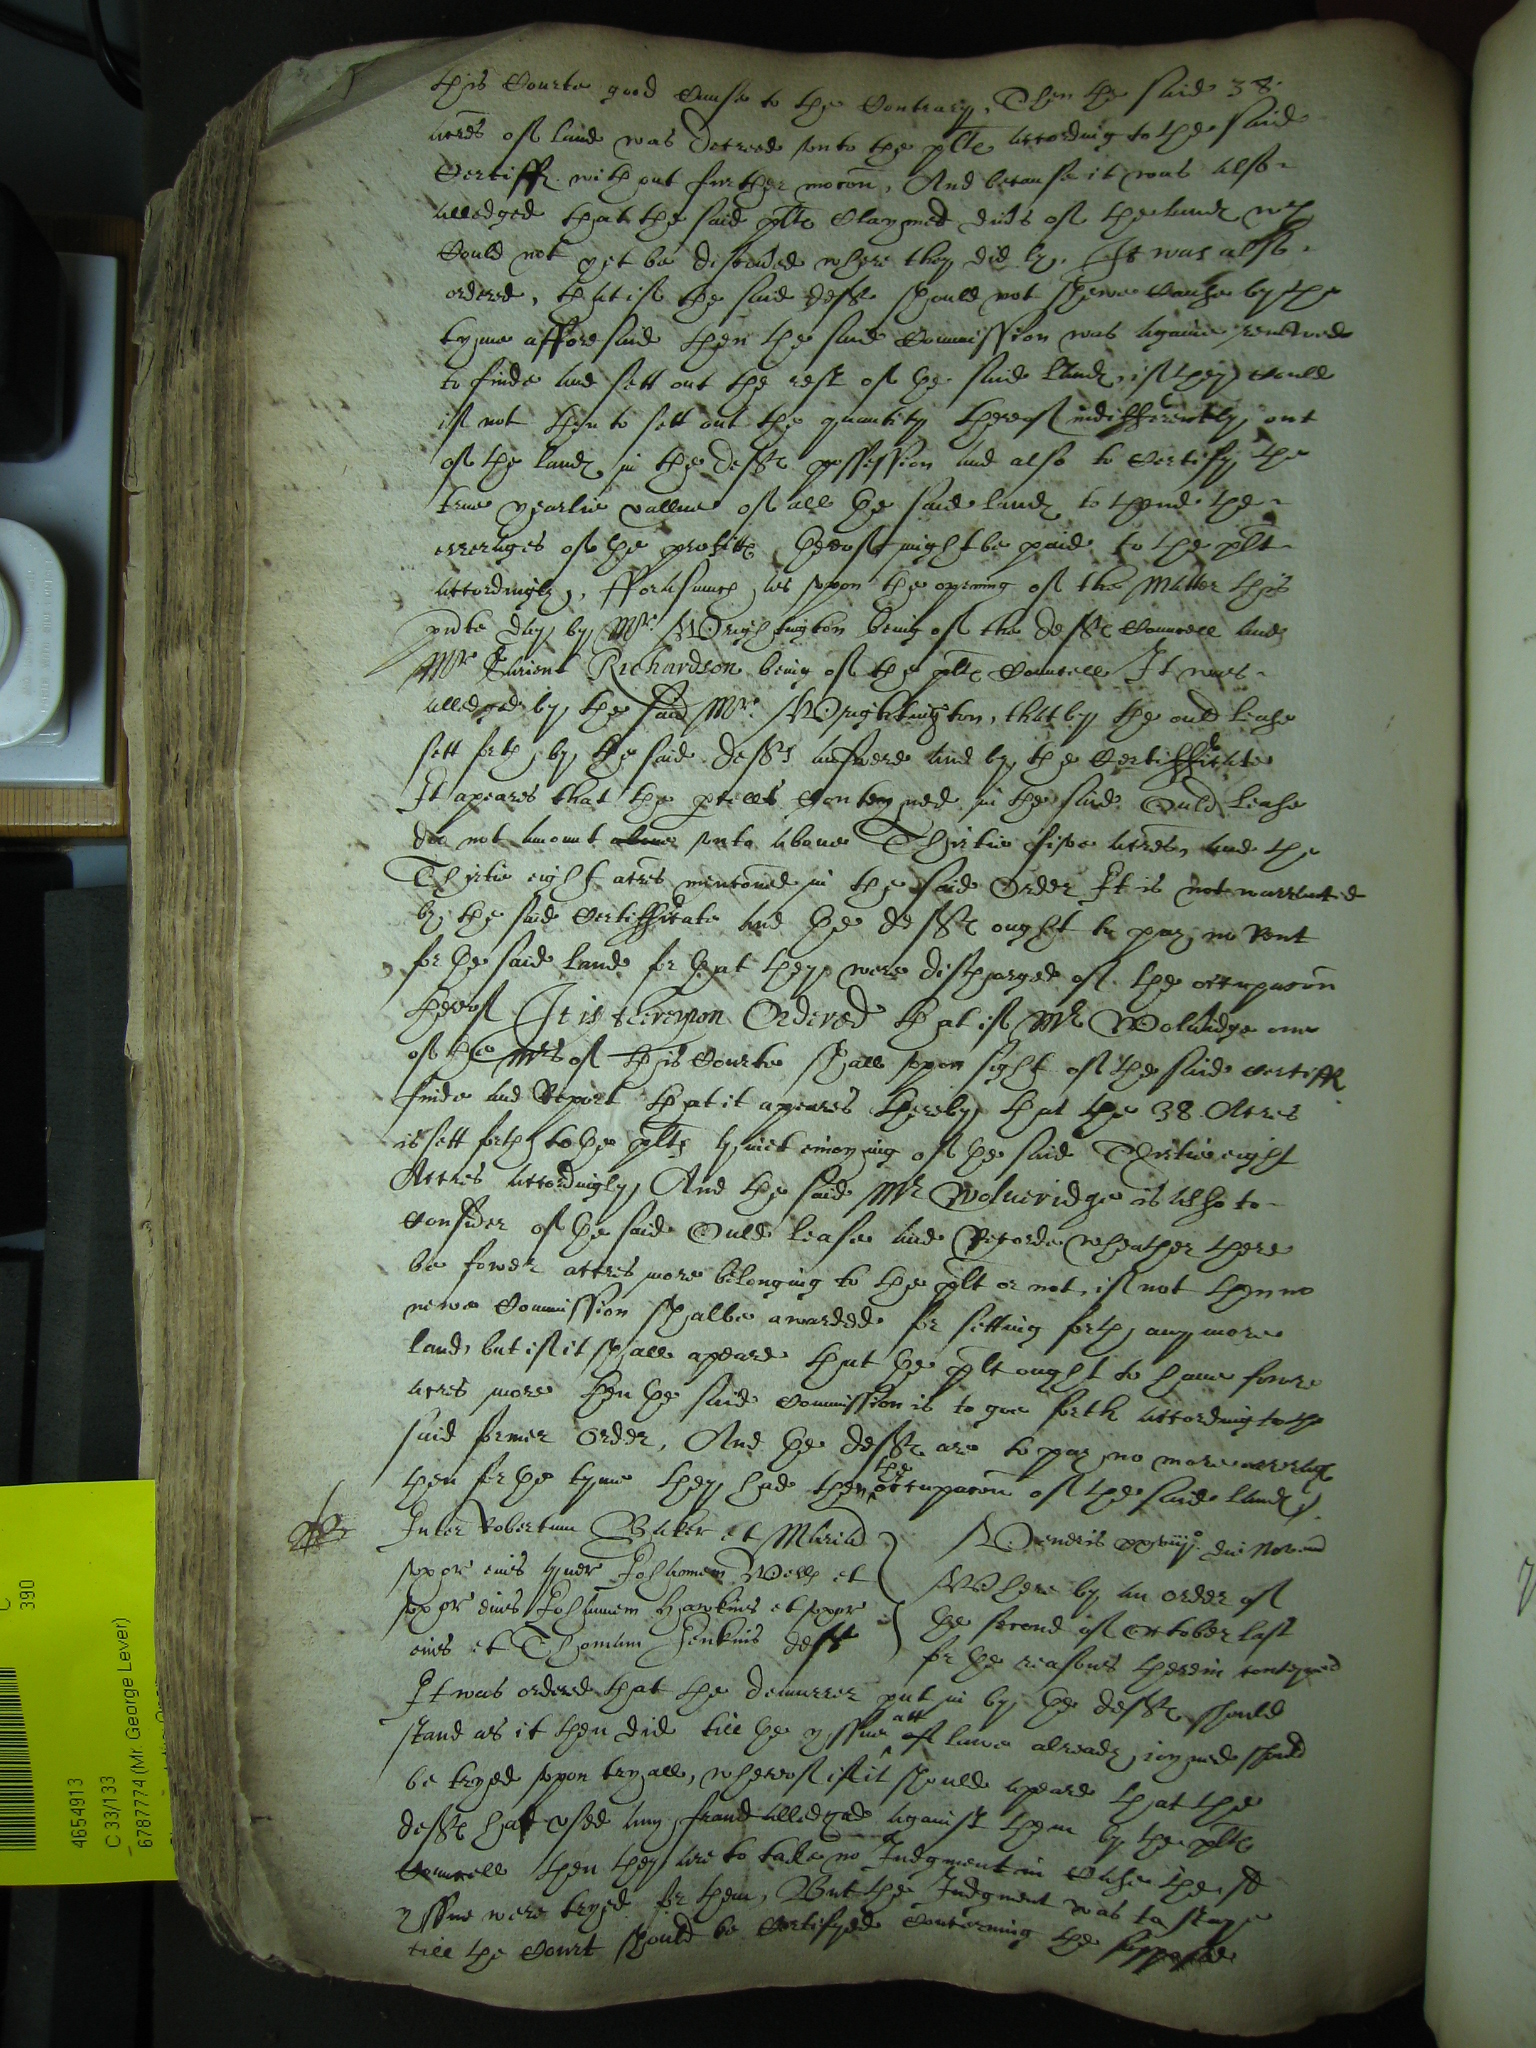 this Courte good Cause to the Contrary, Then the said 38
acres of land was decreed unto the plte according to the said
Certiff. without further mocon, And because it was also
alledged that the said plte Claymed divs of the land wch
Could not yet be discovered where they did ly, It was also
ordered, that if the said deffte should not shewe Cause by the
tyme afforesaid then the said Commission was againe renewed
to finde and sett out the rest of the said land, if they Could
if not then to sett out the quantity thereof indifferently out
of the land in the deffte possession and also to Certify the
true yearlie vallue of all the said land to thend the
arrerages of the profitte thereof might be paid to the plt
accordingly, fforasmuch as upon the opening of the Matter this
pnte day by Mr Wrightington being of the deffte Councell and
Mr Richardson being of the plte Councell It was
alledged by the said Mr Wrightington, that by the ould lease
sett forth by the said deffts answere and by the Certifficate
It apeares that the pcells Conteyned in the said Ould lease
doe not amount unto above Thirtie five acres, and the
Thirtie eight acres mencioned in the said Order It is not warranted
by the said Certifficate and the deffte ought to pay no Rent
for the said land for that they were discharged of the occupacon
thereof It is thereupon Ordered that if Mr Wolveridge one
of the Mrs of this Courte shall upon sight of the said certiff
finde and Report that it apeares thereby that the 38 Acres
is sett forth to the plts quiet enioying of the said Thirtie eight
Acres accordingly, And the said Mr Wolveridge is also to
Consider of the said Ould lease and Recorde wheather there
be fower acres more belonging to the plt or not, if not then no
newe Commission shalbe awarded for setting forth any more
land, but if it shall apeare that the plt ought to have fowre
acres more then the said Commission is to goe forth according to the
said former Order, And the deffte are to pay no more arrerage
then for the tyme they had then the occupacon of the said land
Inter Robertum Baker et Mariā
uxor eius quer Johannem Wells et
uxor eius Johannem Hawkins et uxor
eius et Thomam Jenkins deffte
Veneris xxviijo die Novemb
Where by an order of
the second of October last
for the reasons therein conteyned
It was ordered that the demurrer put in by the deffte should
stand as it then did till the yssue att lawe already ioyned should
be tryed upon tryall, whereof if it should apeare that the
deffte hat used any fraud alledged against them by the plte
Councell then they are to take no Judgment in Case the sd
yssue were tryed for them, But the Judgment was to staye
till the Court should be Certifyed Concerning the supposed
C
390
4654913
C 33/133
6787774 (Mr. George Lever)